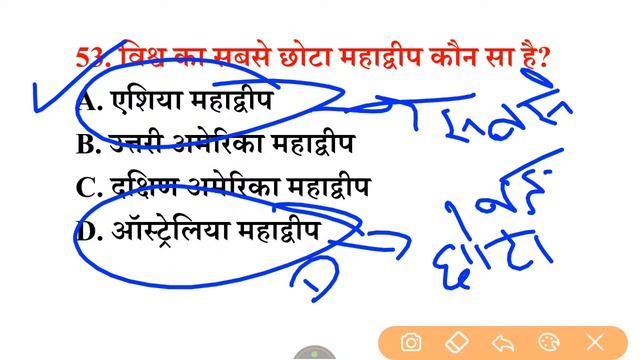 53. विश्व का सबसे छोटा महाद्वीप कौन सा है?
A. एशिया महाद्वीप
सबसे
B. उत्तरी अमेरिका महाद्वीप
C. दक्षिण अमेरिका महाद्वीप
D. ऑस्ट्रेलिया महाद्वीप
छोटा
D